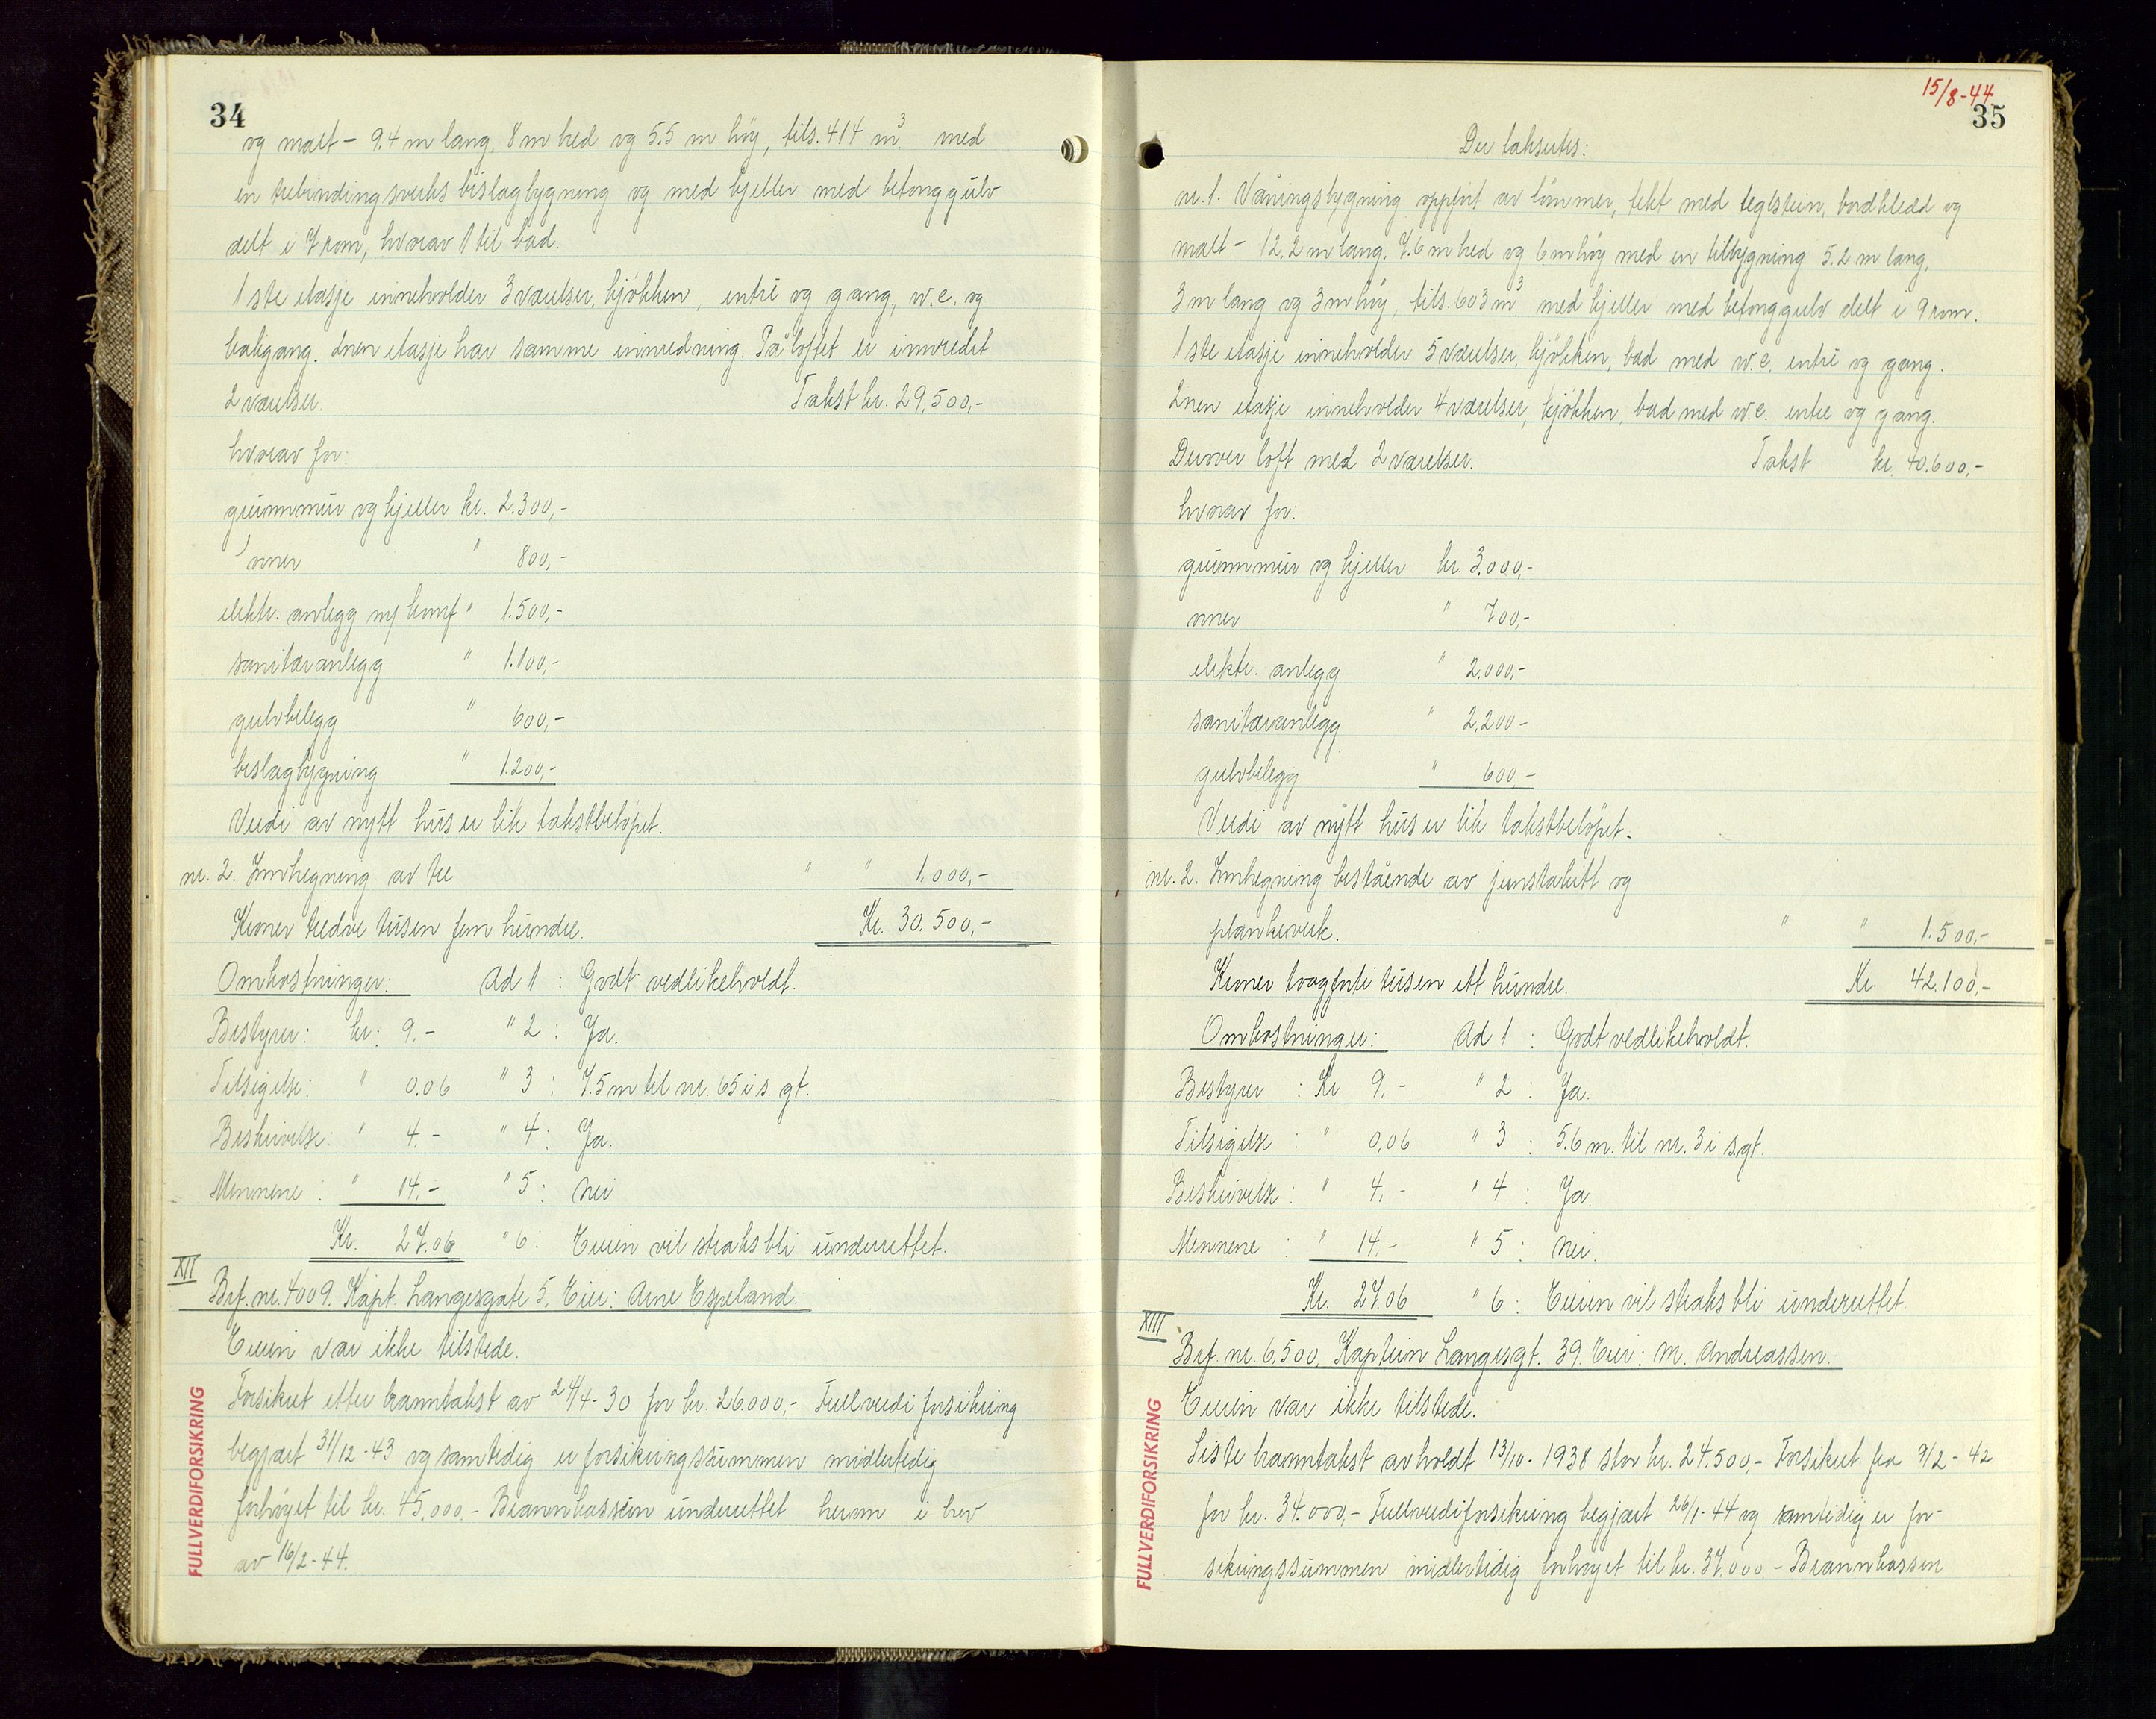 34
og malt - 9.4 m lang, 8 m bred og 5.5 m höy, tils. 414 m³. med
en trebindingsverks bislagbygning og med kjeller med betonggulv
delt i 7 rom, hvorav 1 til bad.
1ste etasje inneholder 3 værelser, kjökken, entré og gang, w.c. og
bakgang. 2nen etasje har samme innredning. På loftet er innredet
2 værelser. Takst kr. 29,500,-
hvorav for:
grunnmur og kjeller kr. 2.300,-
ovner " 800,-
elektr. anlegg m/ komf " 1.500,-
sanitæranlegg " 1.100,-
gulvbelegg " 600,-
bislagbygning " 1.200,-
Verdi av nytt hus er lik takstbelöpet.
nr. 2. Innhegning av tre " " 1.000,-
Kroner tredve tusen fem hundre. Kr. 30.500,-
Omkostninger: Ad 1 : Godt vedlikeholdt.
Bestyrer: kr: 9.- " 2 : Ja.
Tilsigelse: " 0.06 " 3 : 7.5 m til nr. 65 i s. gt.
Beskrivelse: " 4.- " 4 : Ja.
Mennene : " 14.- " 5 : nei
Kr. 27.06 " 6 : Eieren vil straks bli underrettet.
XII
Brf. nr. 4009. Kapt. Langesgate 5. Eier: Arne Espeland.
Eieren var ikke tilstede.
Forsikret etter branntakst av 24/4-30 for kr. 26.000,- Fullverdiforsikring
begjært 31/12-43 og samtidig er forsikringssummen midlertidig
forhöyet til kr. 45.000,- Brannkassen underrettet herom i brev
av 16/2-44.
FULLVERDIFORSIKRING
15/8-44
35
Der takseres:
nr. 1. Våningsbygning oppfört av tömmer, tekt med teglstein, bordkledd og
malt - 12.2 m lang, 7.6 m bred og 6 m höy med en tilbygning 5.2 m lang,
3 m lang og 3 m höy, tils. 603 m³. med kjeller med betonggulv delt i 9 rom.
1ste etasje inneholder 5 værelser, kjökken, bad med w.c. entré og gang.
2nen etasje inneholder 4 værelser, kjökken, bad med w.c. entre og gang.
Derover loft med 2 værelser. Takst kr. 40.600,-
hvorav for:
grunnmur og kjeller kr. 3.000,-
ovner " 700,-
elektr. anlegg " 2.000,-
sanitæranlegg " 2.200 -
gulvbelegg " 600,-
Verdi av nytt hus er lik takstbelöpet.
nr. 2. Innhegning bestående av jernstakitt og
plankeverk. " " 1.500,-
Kroner toogførti tusen ett hundre. Kr. 42.100,-
Omkostninger: Ad 1 : Godt vedlikeholdt.
Bestyrer : Kr 9.- " 2 : Ja.
Tilsigelse : " 0,06 " 3 : 5.6 m. til nr. 3 i s.gt.
Beskrivelse : " 4.- " 4 : Ja
Mennene : " 14.- " 5 : nei.
Kr. 27.06 " 6 : Eieren vil straks bli underrettet.
XIII
Brf. nr. 6.500, Kaptein Langesgt. 39. Eier: M. Andreassen.
Eieren var ikke tilstede.
Siste branntakst avholdt 13/10-1938 stor kr. 24.500,- Forsikret fra 9/2-42
for kr. 34.000,- Fullverdiforsikring begjært 26/1-44 og samtidig er for-
sikringssummen midlertidig forhöyet til kr. 37.000 - Brannkassen
FULLVERDIFORSIKRING